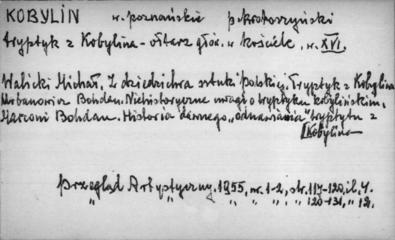 KOBYLIN w. poznańskie p. krotoszyński
tryptyk z Kobylina - ołtarz głów. w kościele, w. XVI.
Walicki Michał. Z dziedzictwa sztuki polskiej. Tryptyk z Kobylina
Urbanowicz Bohdan. Niehistoryczne uwagi o tryptyku kobylińskim.
Marconi Bohdan. Historia dawnego „odnawiania" tryptyku z
Kobylina
Przegląd Artystyczny. 1955, nr. 1-2, str. 117-120, il. 4.
" " " " " 120-131, " 12.